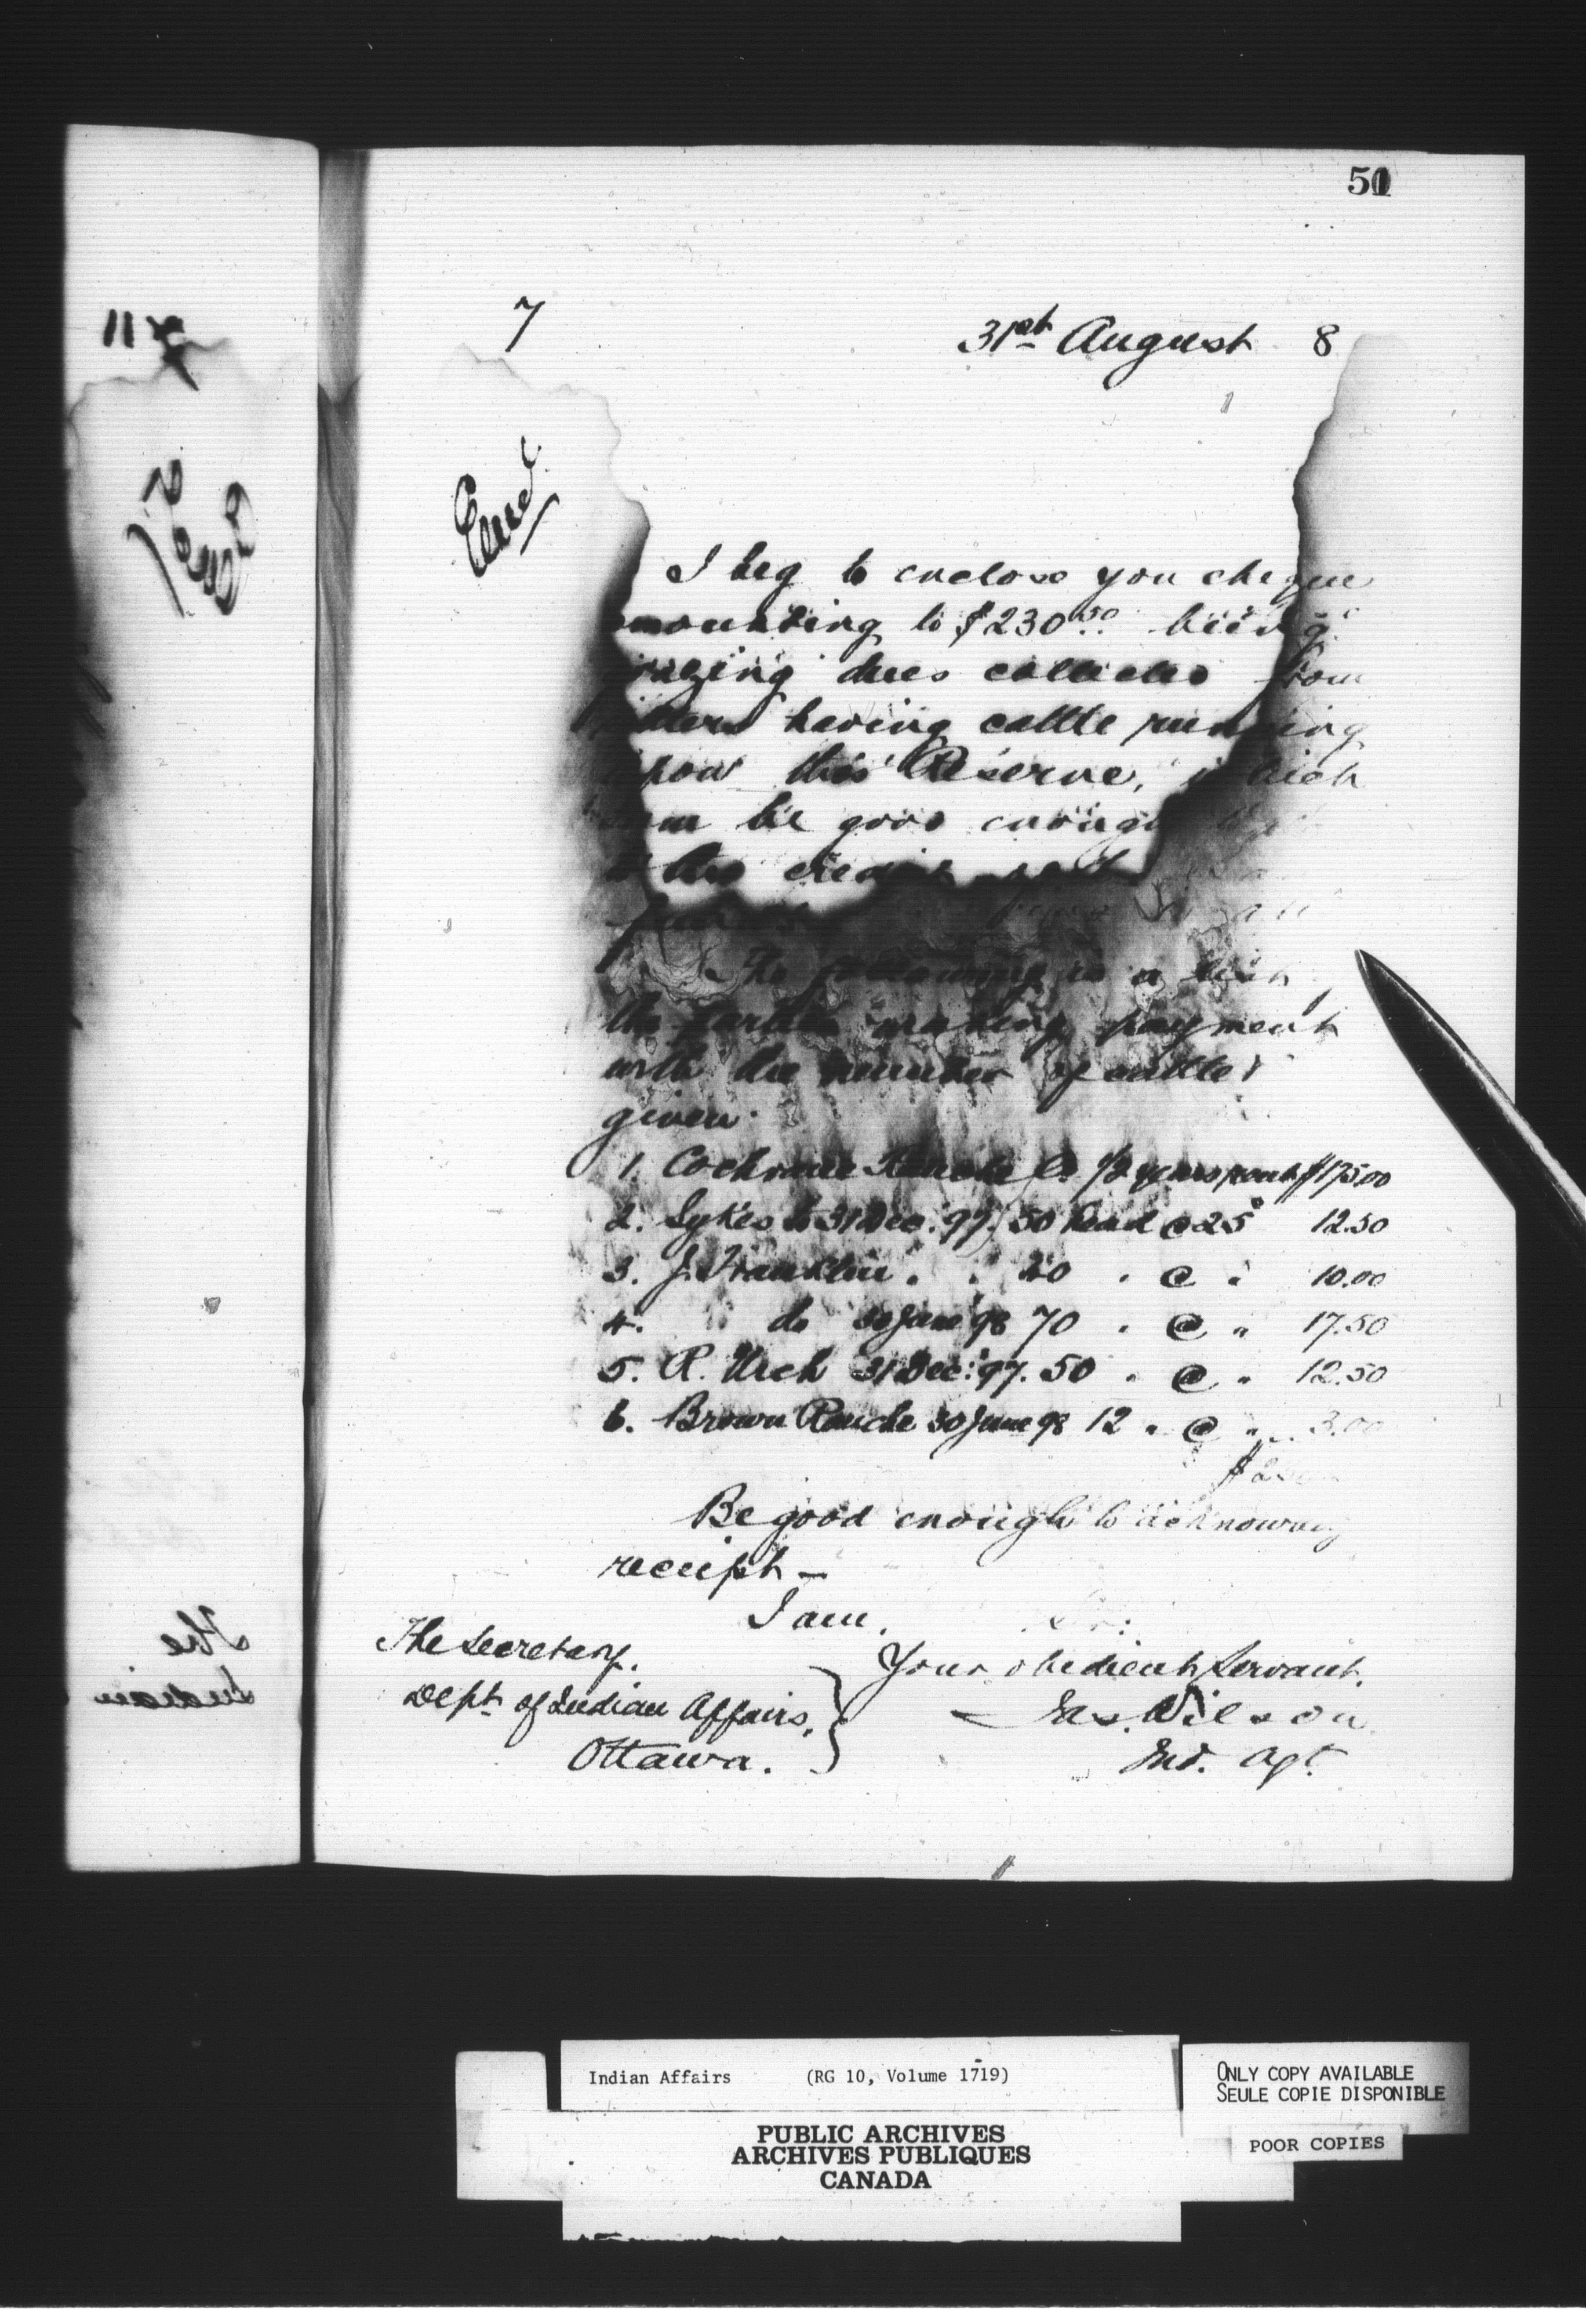 50
7
31st August 8
Encd.
I beg to enclose you cheque
amounting to $230.50 being
grazing dues collected from
having cattle running
upon this Reserve, which
be good enough
to the credit
The following is a list
the parties making payment
with the number of cattle
given.
1. Cochrane Ranche Co. 1/2 years rent $175.00
2. Sykes to 31 Dec. 97. 50 head @ 25c 12.50
3. J. Franklin . . 40 . @ " 10.00
4. " do 30 June 98 70 . @ " 17.50
5. R. Urch 31 Dec: 97. 50 " @ " 12.50
6. Brown Ranche 30 June 98 12 " @ " 3.00
Be good enough to
receipt —
I am, Sir:
Your obedient Servant,
Jas. Wilson
Ind. Agt.
The Secretary,
Dept. of Indian Affairs,
Ottawa.
The
Indian
Indian Affairs (RG 10, Volume 1719)
PUBLIC ARCHIVES
ARCHIVES PUBLIQUES
CANADA
ONLY COPY AVAILABLE
SEULE COPIE DISPONIBLE
POOR COPIES